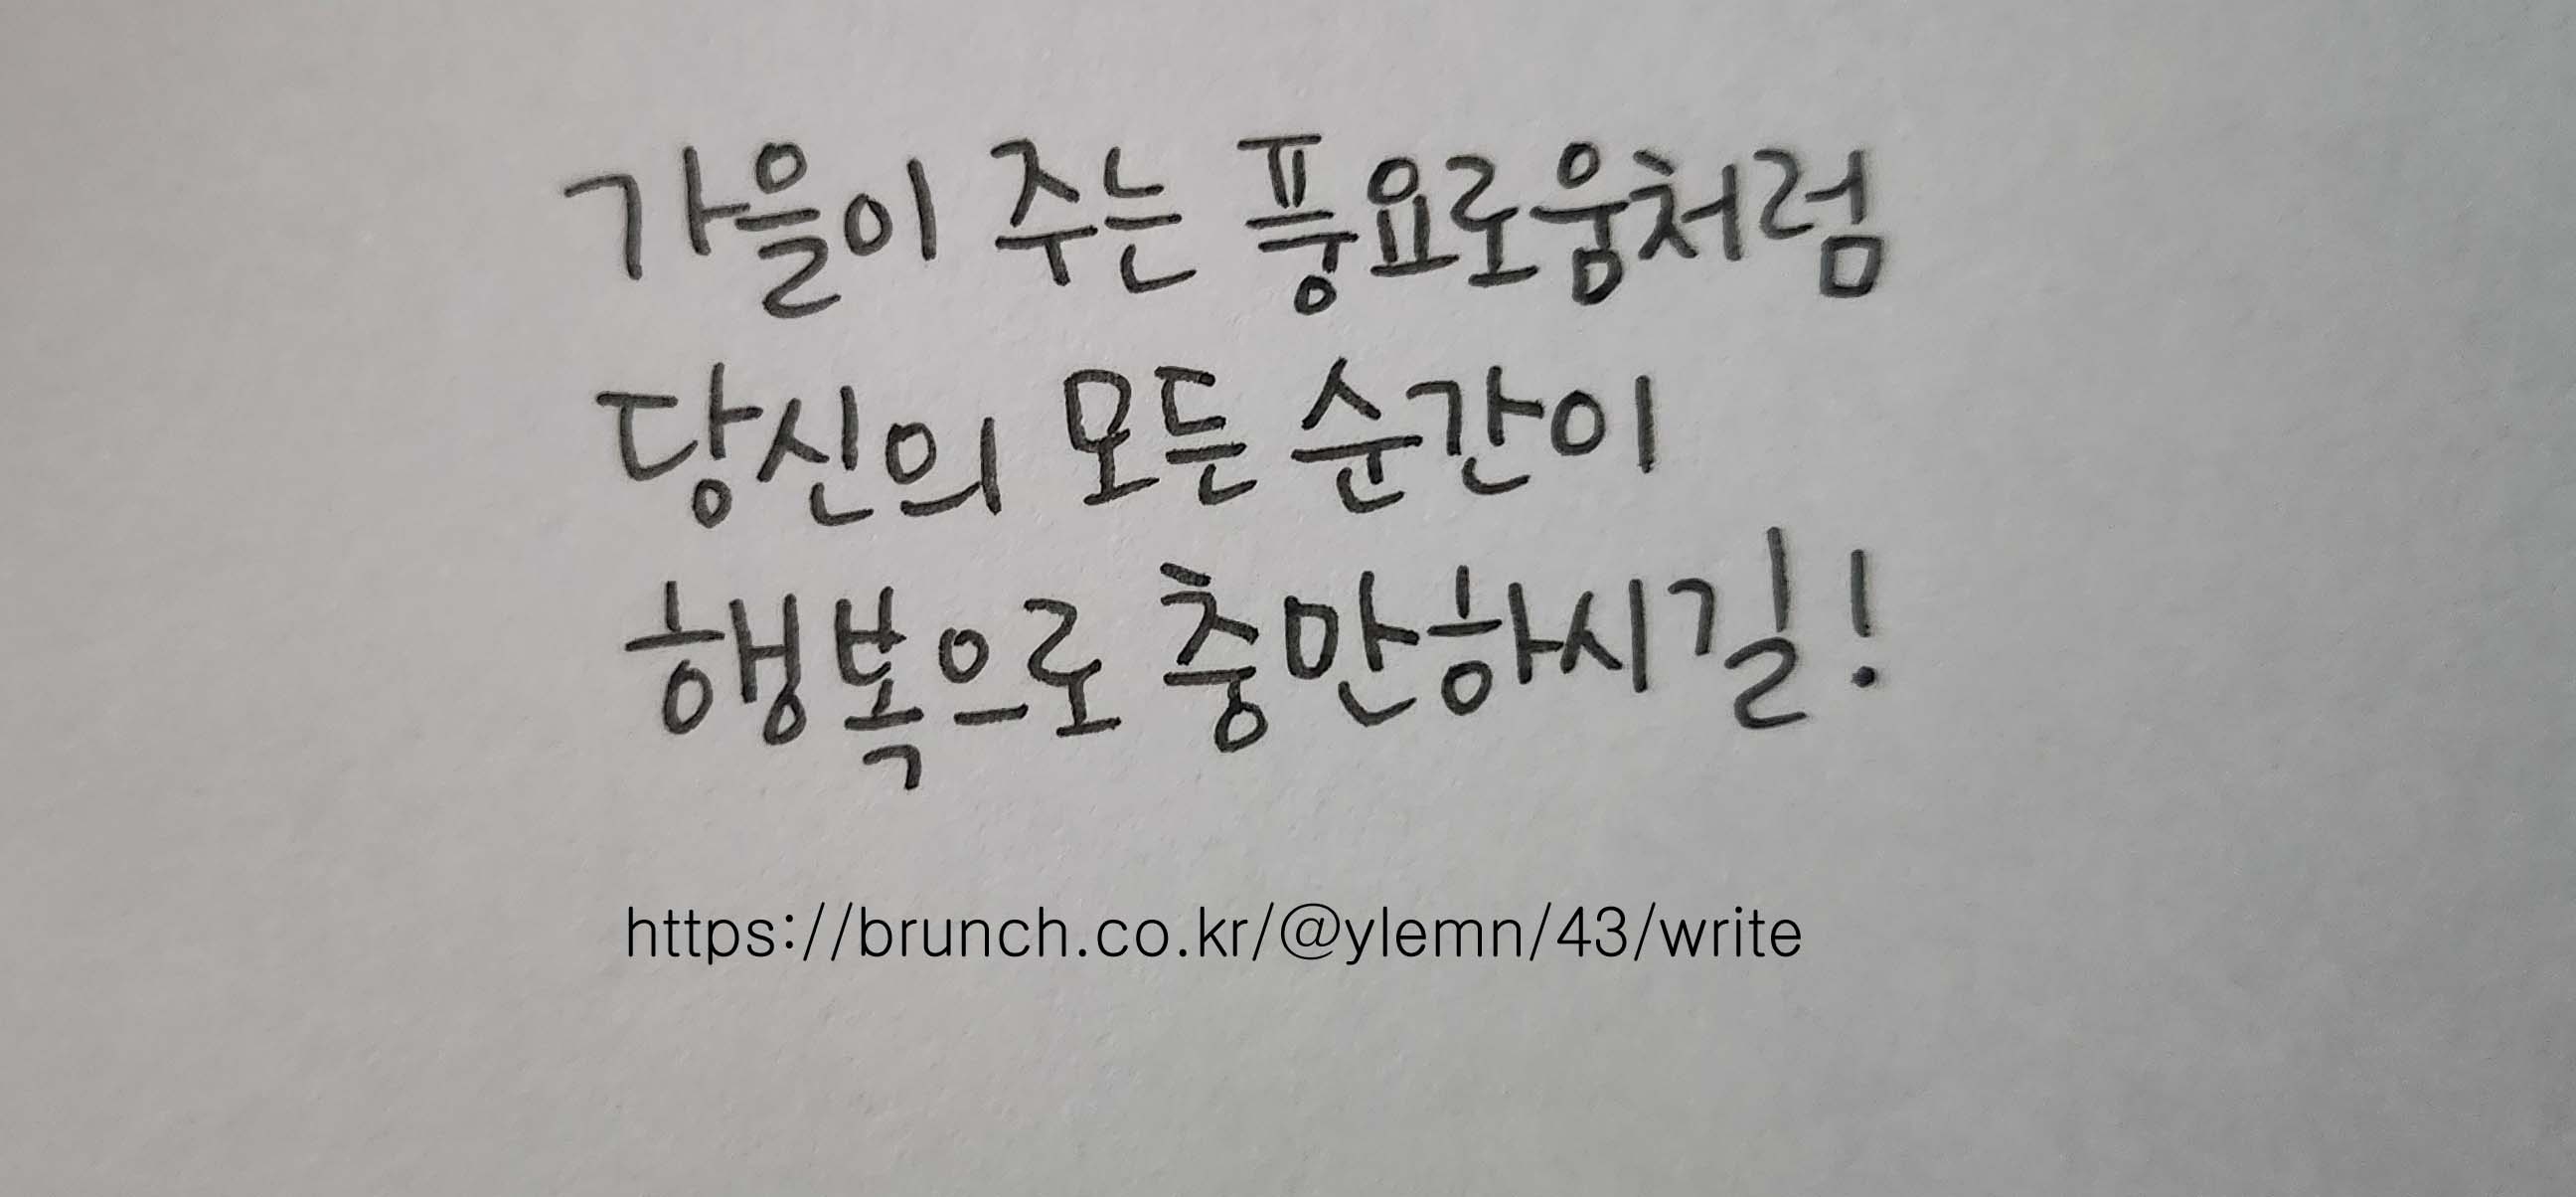 가을이 주는 풍요로움처럼
당신의 모든 순간이
행복으로 충만하시길!
https://brunch.co.kr/@ylemn/43/write